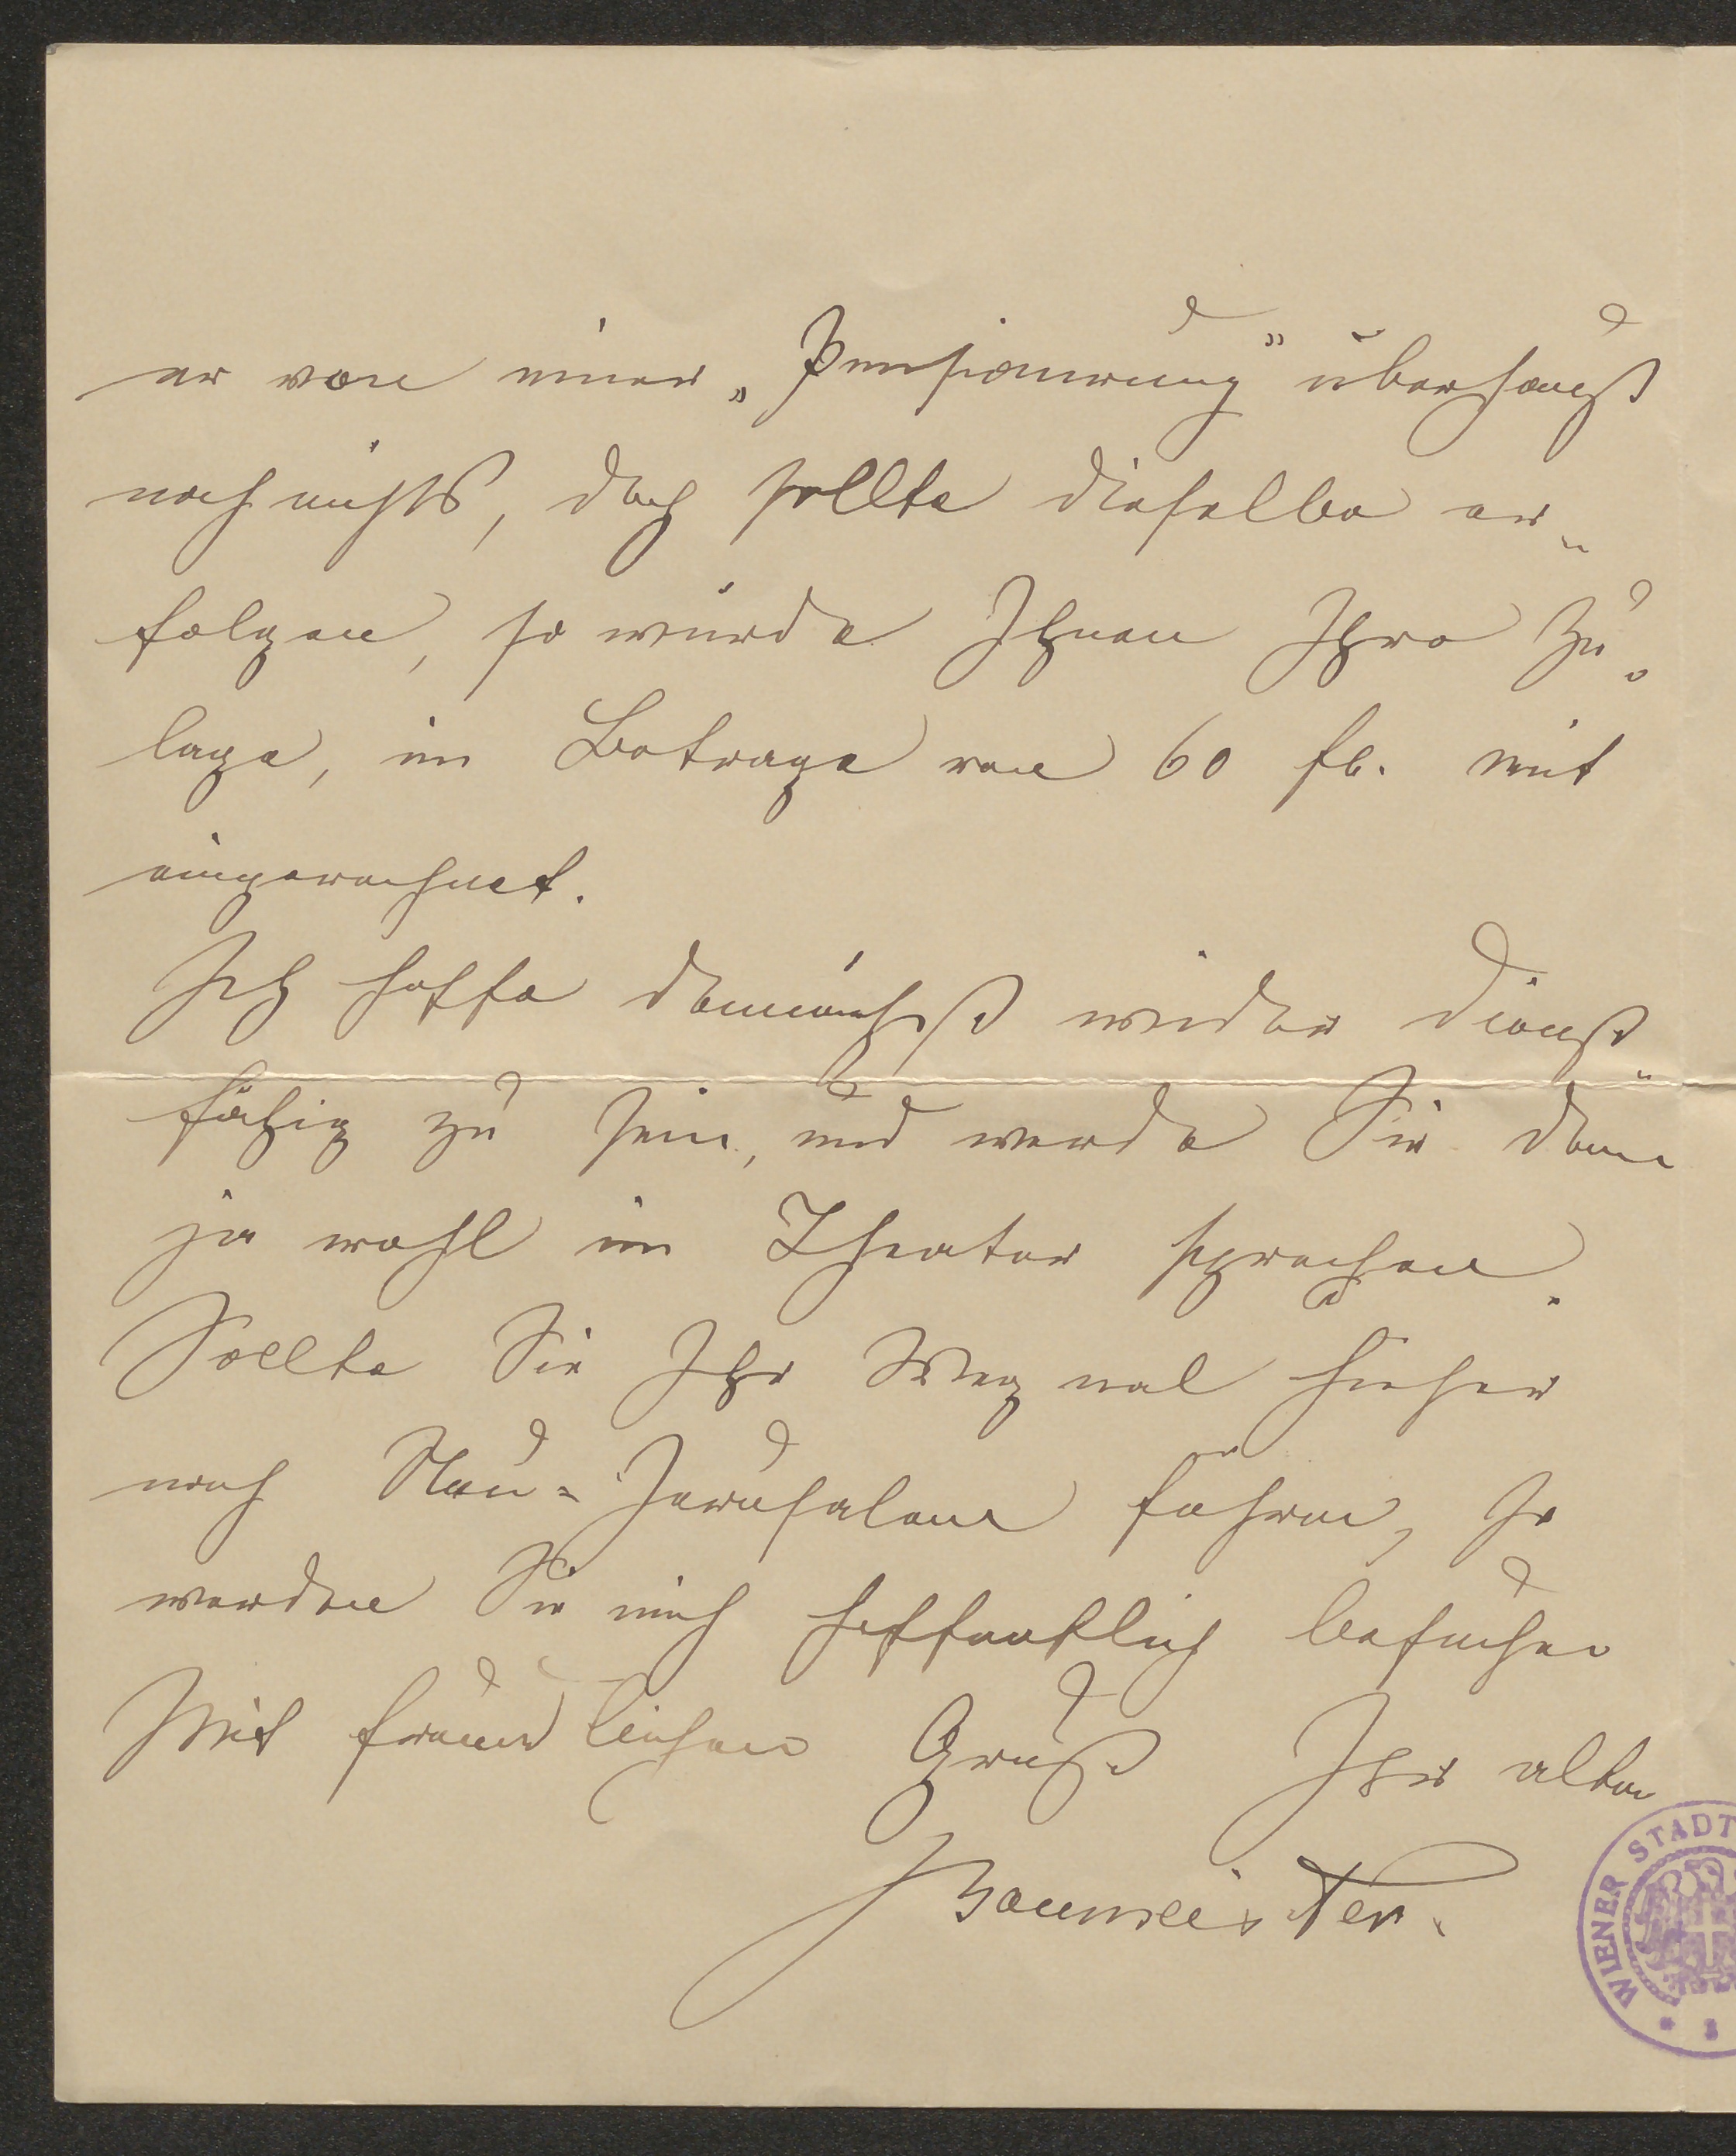 er von einer „Pensionirung" überhaupt
noch nichts, doch sollte dieselbe er-
folgen, so würde Ihnen Ihre Zu-
lage, im Betrage von 60 fl. mit
eingerechnet.
Ich hoffe demnächst wieder dienst-
fähig zu sein, und werde Sie dann
ja wohl im Theater sprechen.
Sollte Sie Ihr Weg mal hieher
nach Neu-Jerusalem führen, so
werden Sie mich hoffentlich besuchen
Mit freundlichen Gruß Ihr alter
Baumeister.
WIENER STADT